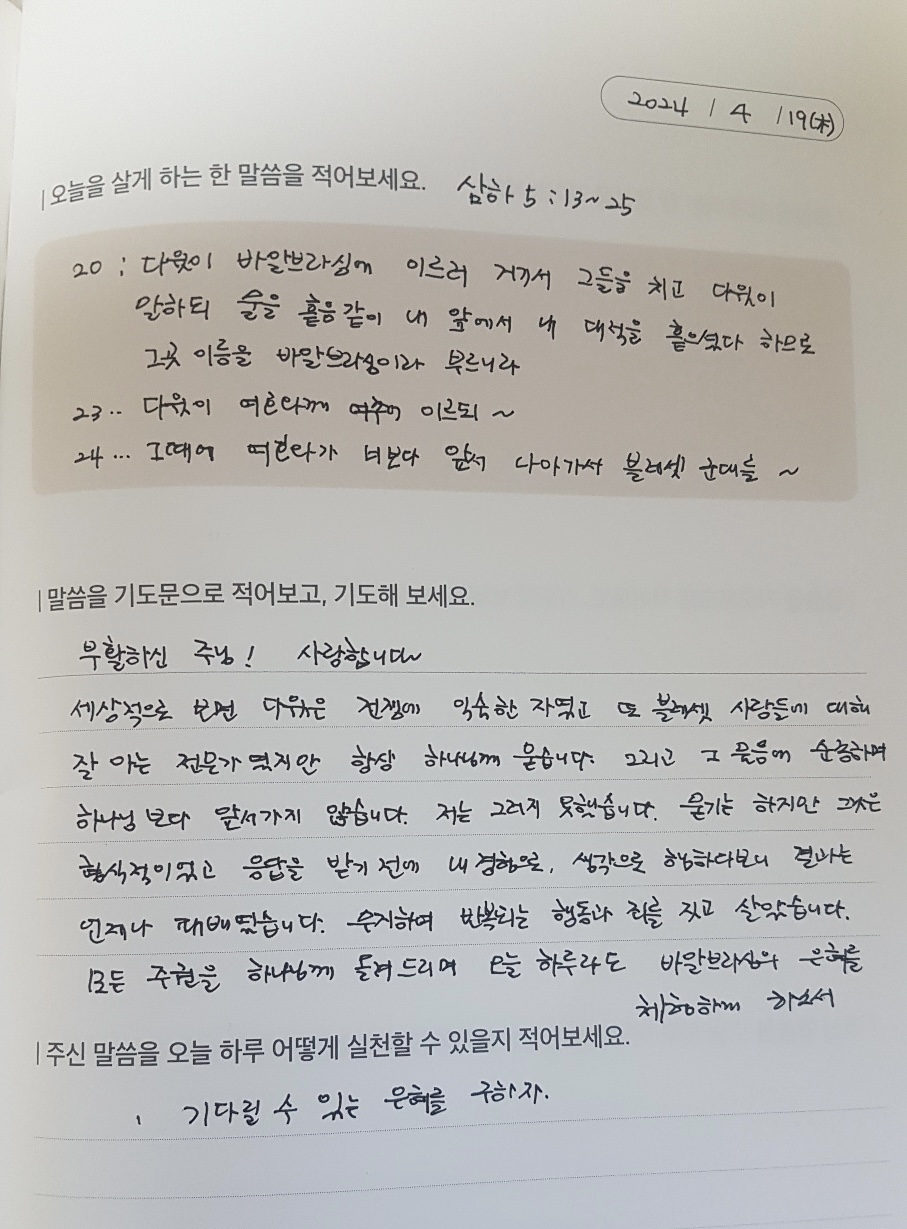 2024 / 4 / 19(木)
오늘을 살게 하는 한 말씀을 적어보세요. 삼하 5 : 13~25
20 : 다윗이 바알브라심에 이르러 거기서 그들을 치고 다윗이
말하되 물을 흩음같이 내 앞에서 내 대적을 흩으셨다 하므로
그곳 이름을 바알브라심이라 부르니라
23.. 다윗이 여호와께 여쭈어 이르되 ~
24... 그때에 여호와가 너보다 앞서 나아가서 블레셋 군대를 ~
말씀을 기도문으로 적어보고, 기도해 보세요.
부활하신 주님! 사랑합니다~
세상적으로 보면 다윗은 전쟁에 익숙한 자였고 또 블레셋 사람들에 대해
잘 아는 전문가 였지만 항상 하나님께 묻습니다. 그리고 그 물음에 순종하며
하나님 보다 앞서가지 않습니다. 저는 그러지 못했습니다. 묻기는 하지만 그것은
형식적이었고 응답을 받기 전에 내 경험으로, 생각으로 행하다보니 결과는
언제나 패배였습니다. 반복되는 행동과 죄를 짓고 살았습니다.
모든 주권을 하나님께 돌려드리며 오늘 하루라도 바알브라심의 은혜를
체험하게 하소서
주신 말씀을 오늘 하루 어떻게 실천할 수 있을지 적어보세요.
기다릴 수 있는 은혜를 구하자.